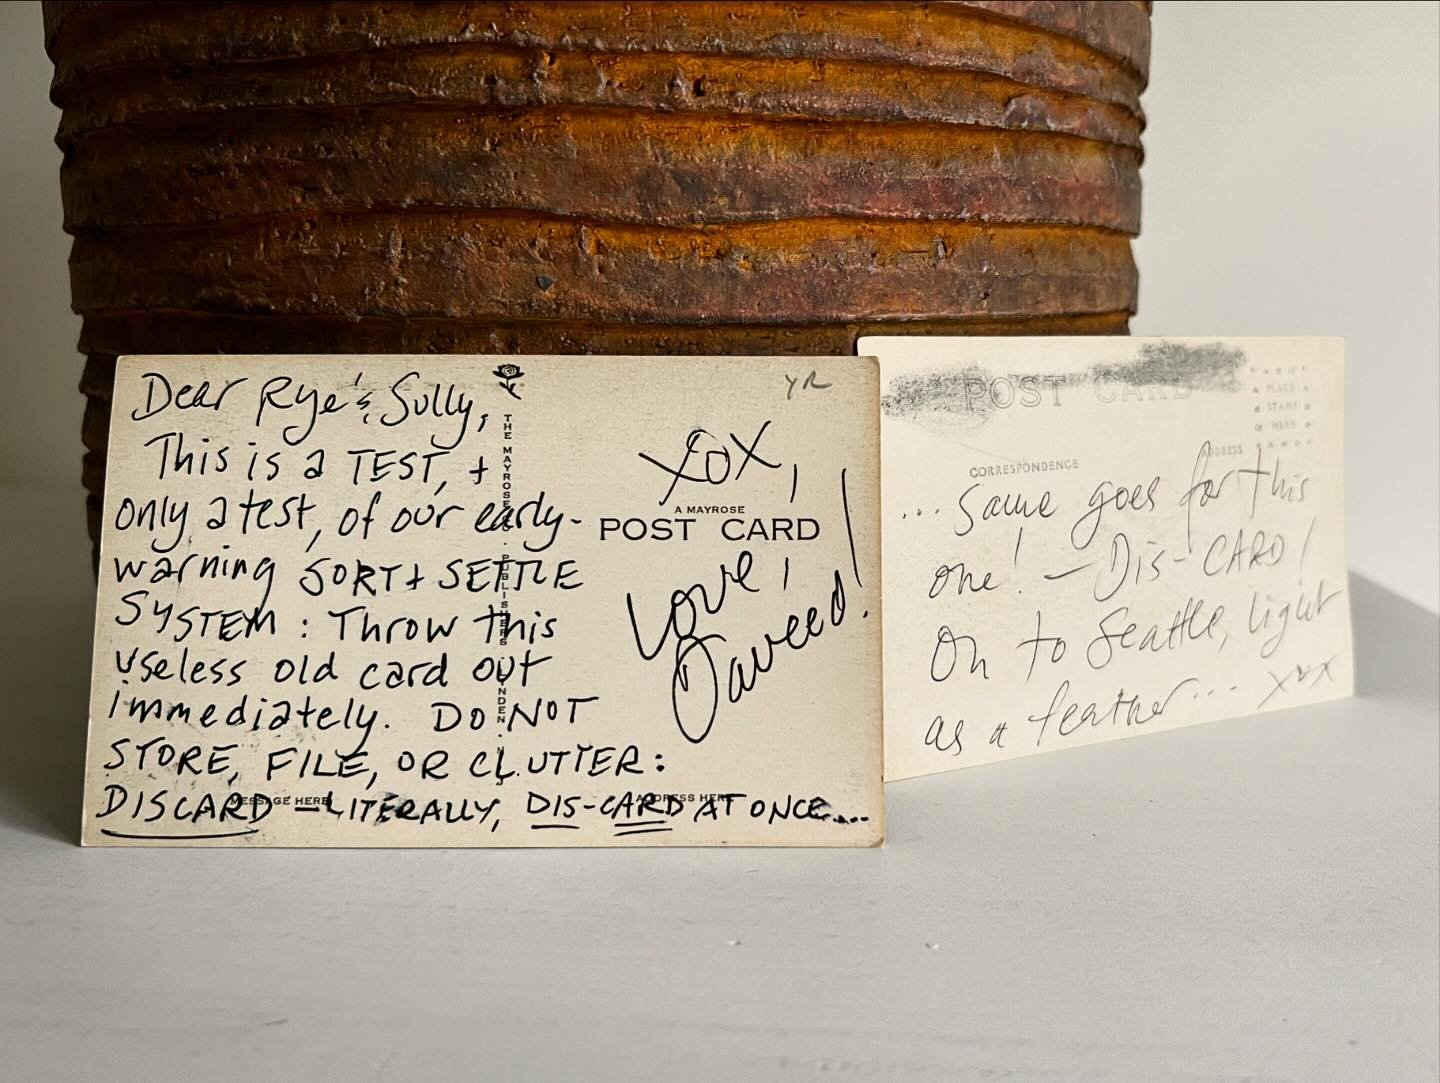 Dear Rye & Sully,
This is a TEST, +
only a test, of our early-
warning SORT + SETTLE
SYSTEM: Throw this
useless old card out
immediately. DO NOT
STORE, FILE, OR CLUTTER:
DISCARD—LITERALLY, DIS-CARD AT ONCE...
MESSAGE HERE
THE MAYROSE PUBLISHERS LINDEN
YR
XOX,
A MAYROSE
POST CARD
Love,
Daveed!
ADDRESS HERE
POST CARD
PLACE
STAMP
HERE
CORRESPONDENCE
ADDRESS
... Same goes for this
one! — Dis-CARD!
On to Seattle, light
as a feather... XOX